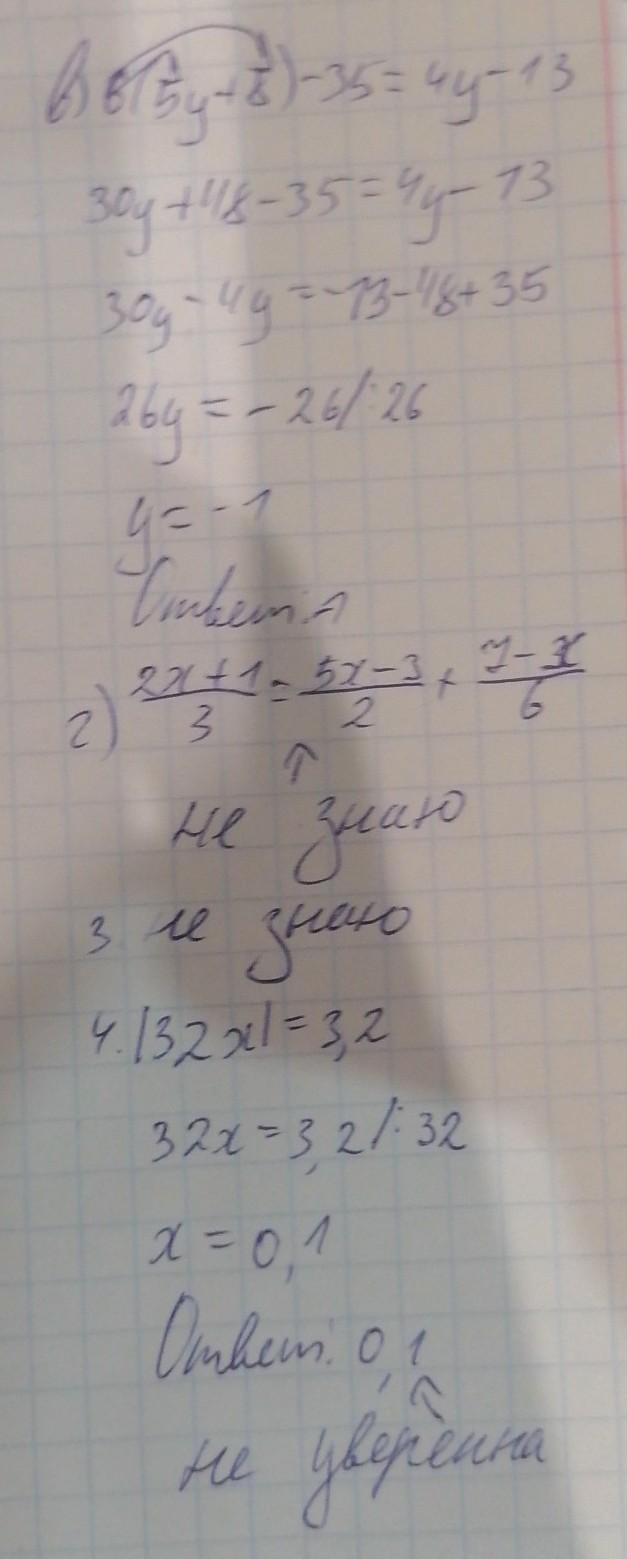 в) 6(5y+8)-35=4y-13
30y+48-35=4y-13
30y-4y=-13-48+35
26y=-26/:26
y=-1
Ответ:-1
г) (2x+1)/3=(5x-3)/2+(7-x)/6
↑
не знаю
3 не знаю
4. |32x|=3,2
32x=3,2/:32
x=0,1
Ответ: 0,1
↑
не уверенна